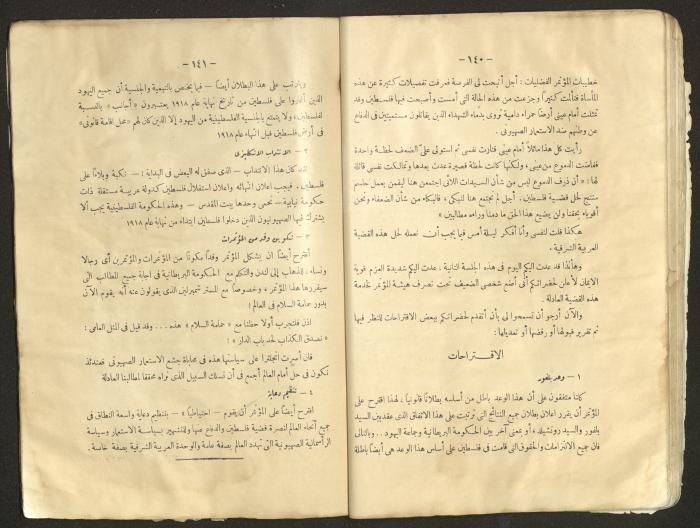 — ١٤٠ —
خطيبات المؤتمر الفضليات : أجل أتيحت لى الفرصة فعرفت تفصيلات كثيرة عن هذه
المأساة فتألمت كثيراً وجزعت من هذه الحالة التى أمست وأصبحت فيها فلسطين وقد
تمثلت أمام عينى أرضاً حمراء دامية تروى بدماء الشهداء الذين يقاتلون مستميتين فى الدفاع
عن وطنهم ضد الاستعمار الصهيونى .
رأيت كل هذا ماثلاً أمام عينى فثارت نفسى ثم استولى علىّ الضعف لحظة واحدة
ففاضت الدموع من عينى ، ولكنها كانت لحظة قصيرة عدت بعدها وتمالكت نفسى قائلة
لها : « أن ذرف الدموع ليس من شأن السيدات اللائى اجتمعن هنا ليقمن بعمل حاسم
منتج لحل قضية فلسطين . أجل لم نجتمع هنا لنبكى ، فالبكاء من شأن الضعفاء ونحن
أقوياء بحقنا ولن يضيع هذا الحق ما دمنا وراءه مطالبين »
هكذا قلت لنفسى وأنا أفكر ليلة أمس فيما يجب أن نعمله لحل هذه القضية
العربية الشرقية .
وهأنذا قد عدت اليكم اليوم فى هذه الجلسة الثانية ، عدت اليكم شديدة العزم قوية
الايمان لأعلن لحضراتكم أنى أضع شخصى الضعيف تحت تصرف هيئة المؤتمر لخدمة
هذه القضية العادلة .
والآن أرجو أن تسمحوا لى بأن أتقدم لحضراتكم ببعض الاقتراحات للنظر فيها
ثم تقرير قبولها أو رفضها أو تعديلها :
الاقتراحات
١ — وعد بلفور
كلنا متفقون على أن هذا الوعد باطل من أساسه بطلاناً قانونياً ، لهذا اقترح على
المؤتمر أن يقرر اعلان بطلان جميع النتائج التى ترتبت على هذا الاتفاق الذى عقد بين السيد
بلفور والسيد روتشيلد ، أو بمعنى آخر بين الحكومة البريطانية وجماعة اليهود ... وبالتالى
فان جميع الالتزامات والحقوق التى قامت فى فلسطين على أساس هذا الوعد هى أيضاً باطلة
— ١٤١ —
ويترتب على هذا البطلان أيضاً — فيما يختص بالتبعية والجنسية أن جميع اليهود
الذين أغاروا على فلسطين من تاريخ نهاية عام ١٩١٨ يعتبرون « أجانب » بالنسبة
لفلسطين ، ولا يتمتع بالجنسية الفلسطينية من اليهود إلا الذين كان لهم « محل اقامة قانونى »
فى أرض فلسطين قبل انتهاء عام ١٩١٨
٢ — الانتداب الانكليزى
لقد كان هذا الانتداب — الذى صفق له البعض فى البداية — نكبة وبلاءً على
فلسطين ، فيجب اعلان انتهائه واعلان استقلال فلسطين كدولة عربية مستقلة ذات
حكومة نيابية — تحمى وحدها بيت المقدس — وهذه الحكومة الفلسطينية يجب ألا
يشترك فيها الصهيونيون الذين دخلوا فلسطين ابتداء من نهاية عام ١٩١٨
٣ — تكوين وفد من المؤتمرات
أقترح أيضاً أن يشكل المؤتمر وفداً مكوناً من المؤتمرات والمؤتمرين أى رجالا
ونساء ، للذهاب إلى لندن والتكلم مع الحكومة البريطانية فى اجابة جميع المطالب التى
سيقررها هذا المؤتمر ، وخصوصاً مع المستر شمبرلين الذى يقولون عنه أنه يقوم الآن
بدور حمامة السلام فى العالم !
اذن فلنجرب أولا حظنا مع « حمامة السلام » هذه ... وقد قيل فى المثل العامى :
« نصدق الكذاب لحد باب الدار » :
فان أسرت انجلترا على سياستها هذه فى محاباة جشع الاستعمار الصهيونى فعندئذ
نكون فى حل أمام العالم أجمع فى أن نسلك السبيل الذى نراه محققا لمطالبنا العادلة
٤ — تنظيم دعاية
اقترح أيضاً على المؤتمر أن يقوم — احتياطياً — بتنظيم دعاية واسعة النطاق فى
جميع أنحاء العالم لنصرة قضية فلسطين والدفاع عنها وللتشهير بسياسة الاستعمار وسياسة
الرأسمالية الصهيونية التى تهدد العالم بصفة عامة والوحدة العربية الشرقية بصفة خاصة .